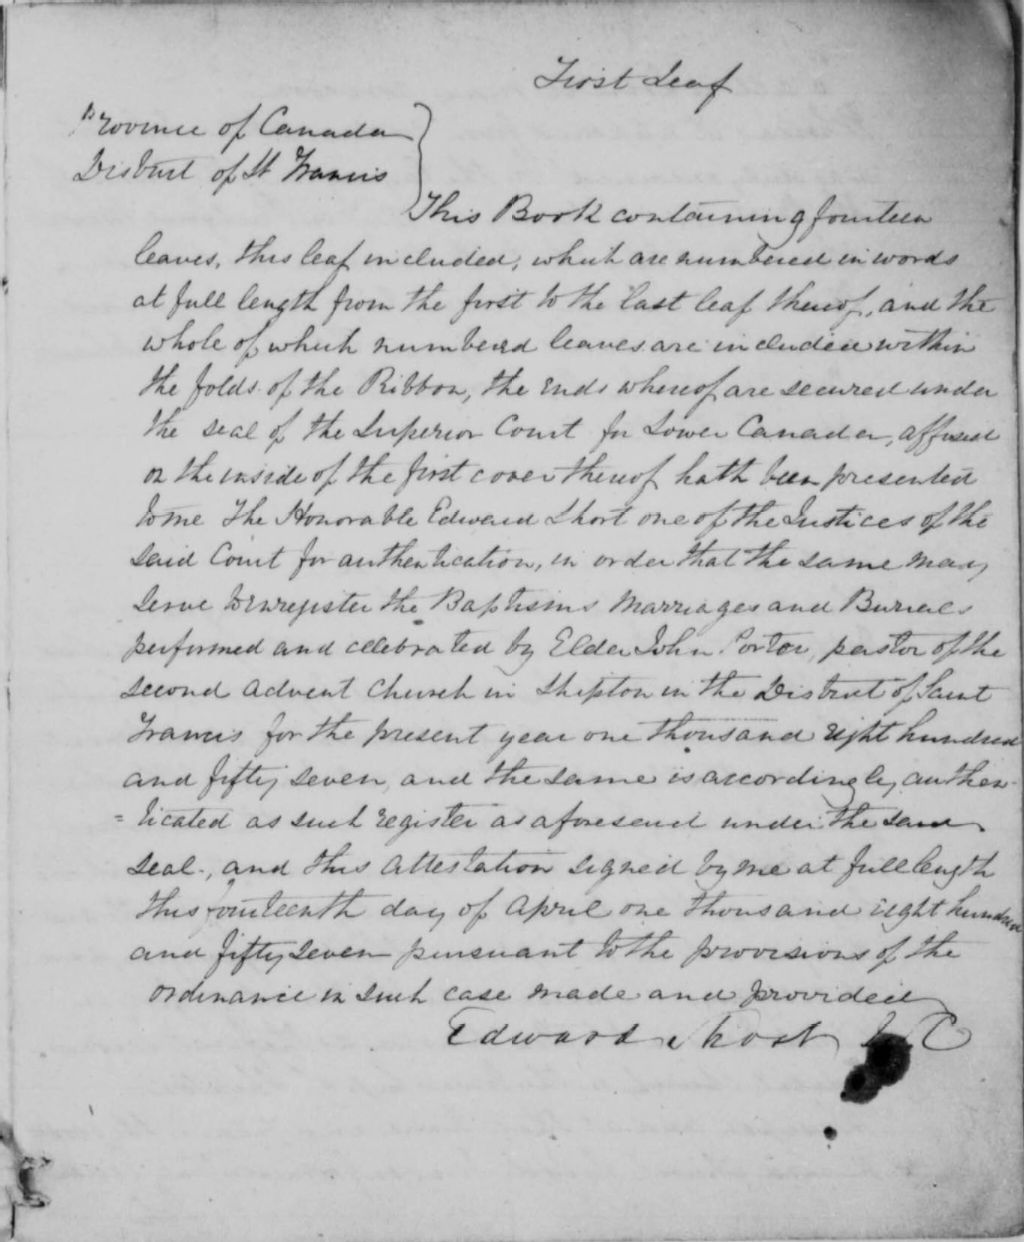 First Leaf
Province of Canada
District of St Francis
This Book containing fourteen
leaves, this leaf included, which are numbered in words
at full length from the first to the last leaf thereof, and the
whole of which numbered leaves are included within
the folds of the Ribbon, the ends whereof are secured under
the seal of the Superior Court for Lower Canada, affixed
on the inside of the first cover thereof hath been presented
to me The Honorable Edward Short one of the Justices of the
said Court for authentication, in order that the same may
serve to enregister the Baptisms Marriages and Burials
performed and celebrated by Elder John Porter, pastor of the
second advent Church in Shipton in the District of Saint
Francis for the present year one thousand eight hundred
and fifty seven, and the same is accordingly authen-
=ticated as such register as aforesaid under the said
seal, and this attestation signed by me at full length
this fourteenth day of April one thousand eight hundred
and fifty seven pursuant to the provisions of the
ordinance in such case made and provided
Edward Short